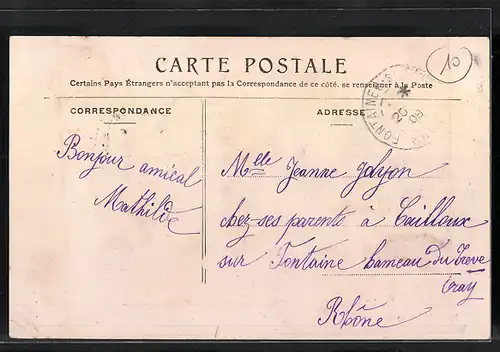 10
CARTE POSTALE
Certains Pays Étrangers n'acceptant pas la Correspondance de ce côté, se renseigner à la Poste
CORRESPONDANCE
Bonjour amical
Mathilde
ADRESSE
FONTAINES
26
08
Mlle Jeanne
chez ses parents à Cailloux
sur Fontaine hameau du Treve
Rhône